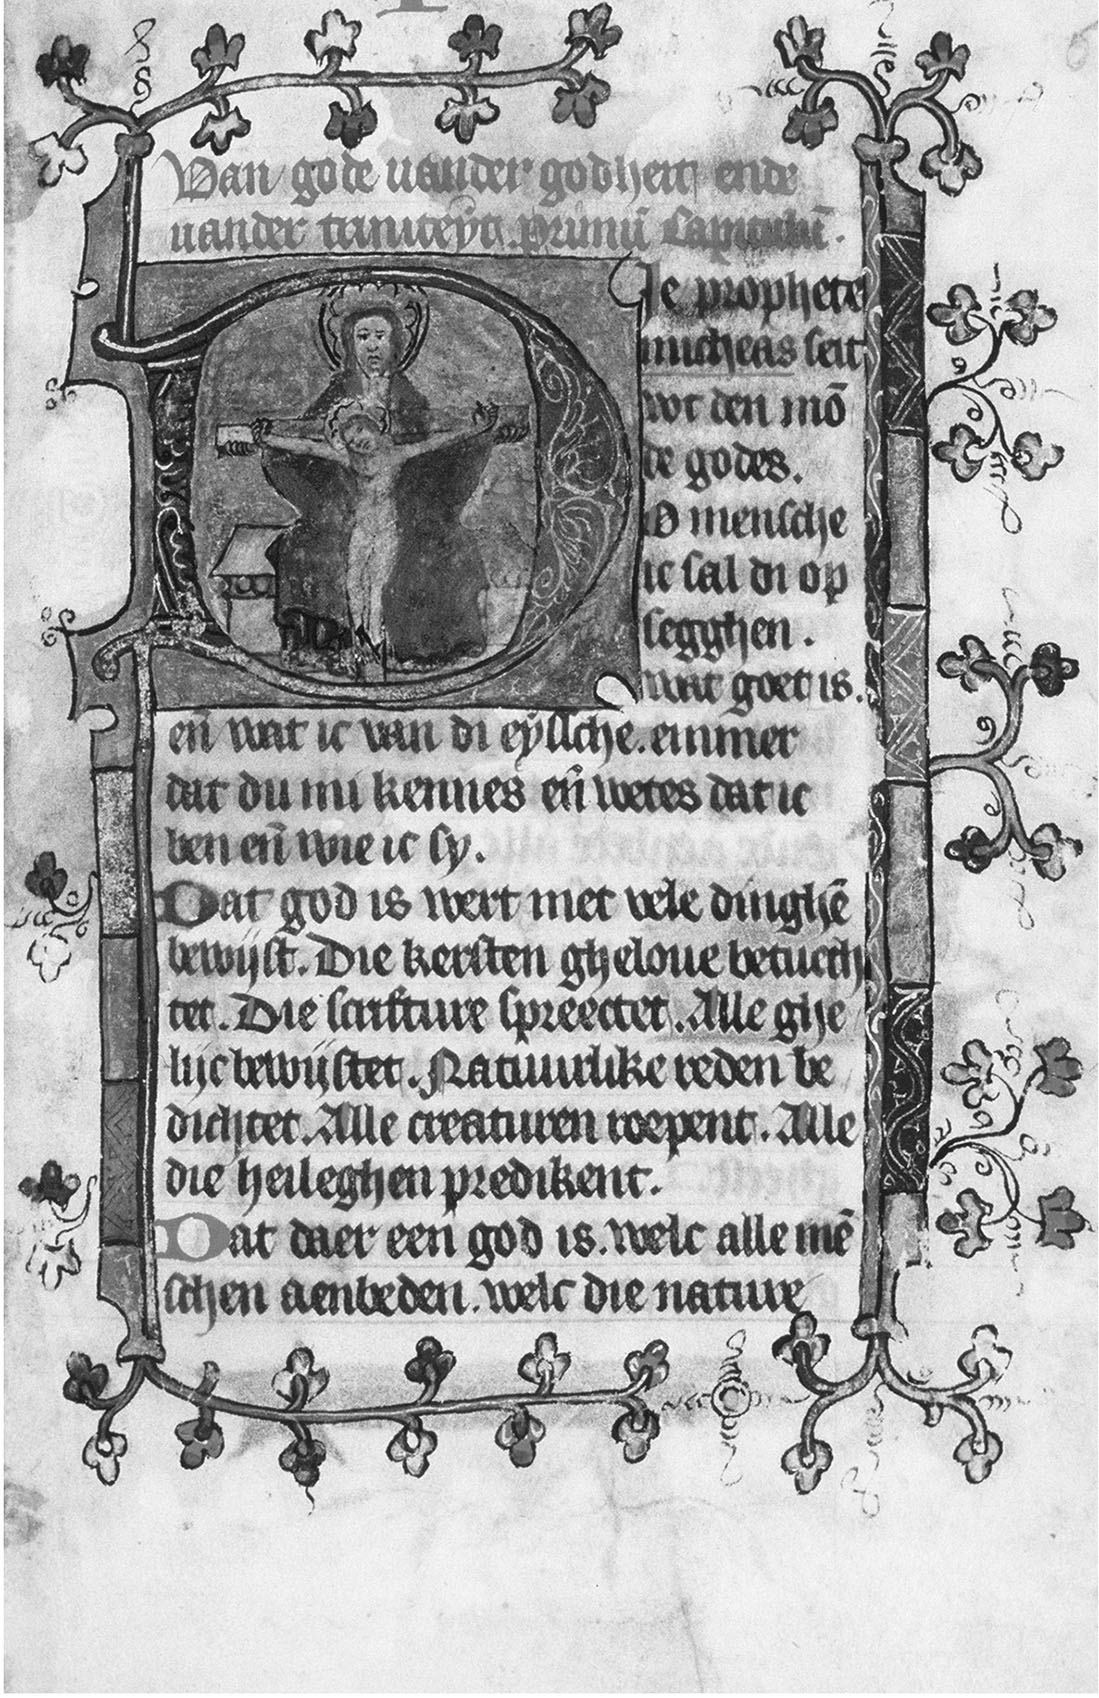 Van gode vander godheit ende
vander triniteyt. Primū Capitulū.
Die prophete
micheas seit
wt den mō
de godes.
O mensche
ic sal di op
legghen.
wat goet is.
eñ wat ic van di eyssche. emmer
dat du mi kennes eñ wetes dat ic
ben eñ wie ic sy.
Dat god is wert met vele dinghē
bewijst. Die kersten gheloue betuech
tet. Die scrifture spreectet. Alle ghe
lijc bewijstet. Natuurlike reden be
dichtet. Alle creaturen roepent. Alle
die heileghen predikent.
Dat daer een god is. welc alle mē
schen aenbeden. welc die nature